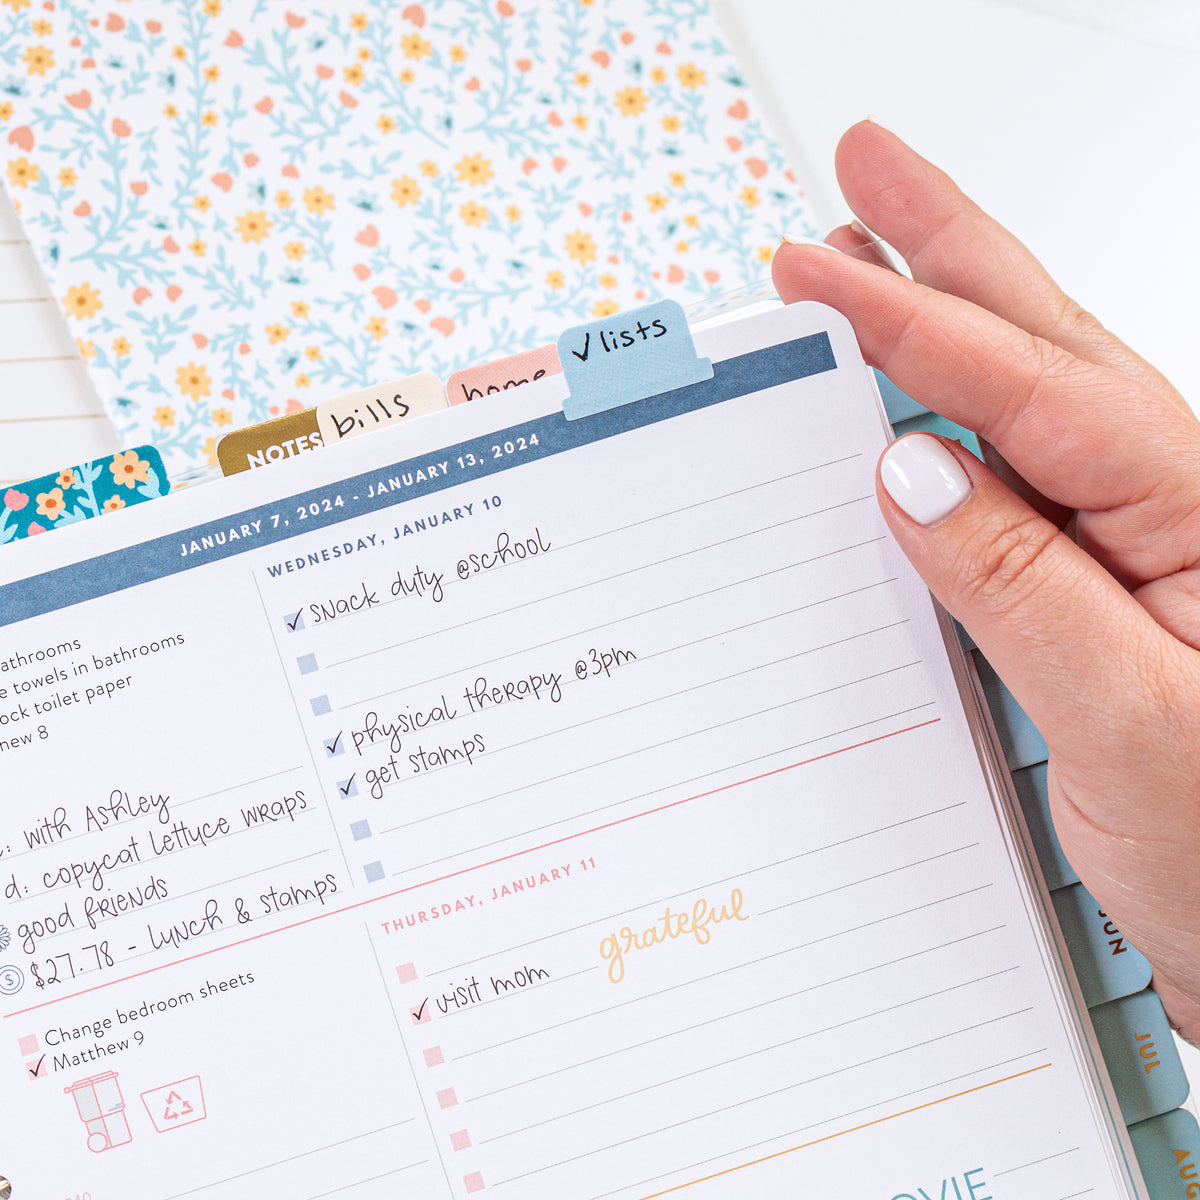 ✓lists
home
bills
NOTES
JANUARY 7, 2024 - JANUARY 13, 2024
WEDNESDAY, JANUARY 10
✓ snack duty @school
✓ physical therapy @3pm
✓ get stamps
towels in bathrooms
toilet paper
8
: with Ashley
d: copycat lettuce wraps
good friends
$ $27.78 - lunch & stamps
THURSDAY, JANUARY 11
grateful
✓ visit mom
Change bedroom sheets
✓ Matthew 9
JUN
JUL
AUG